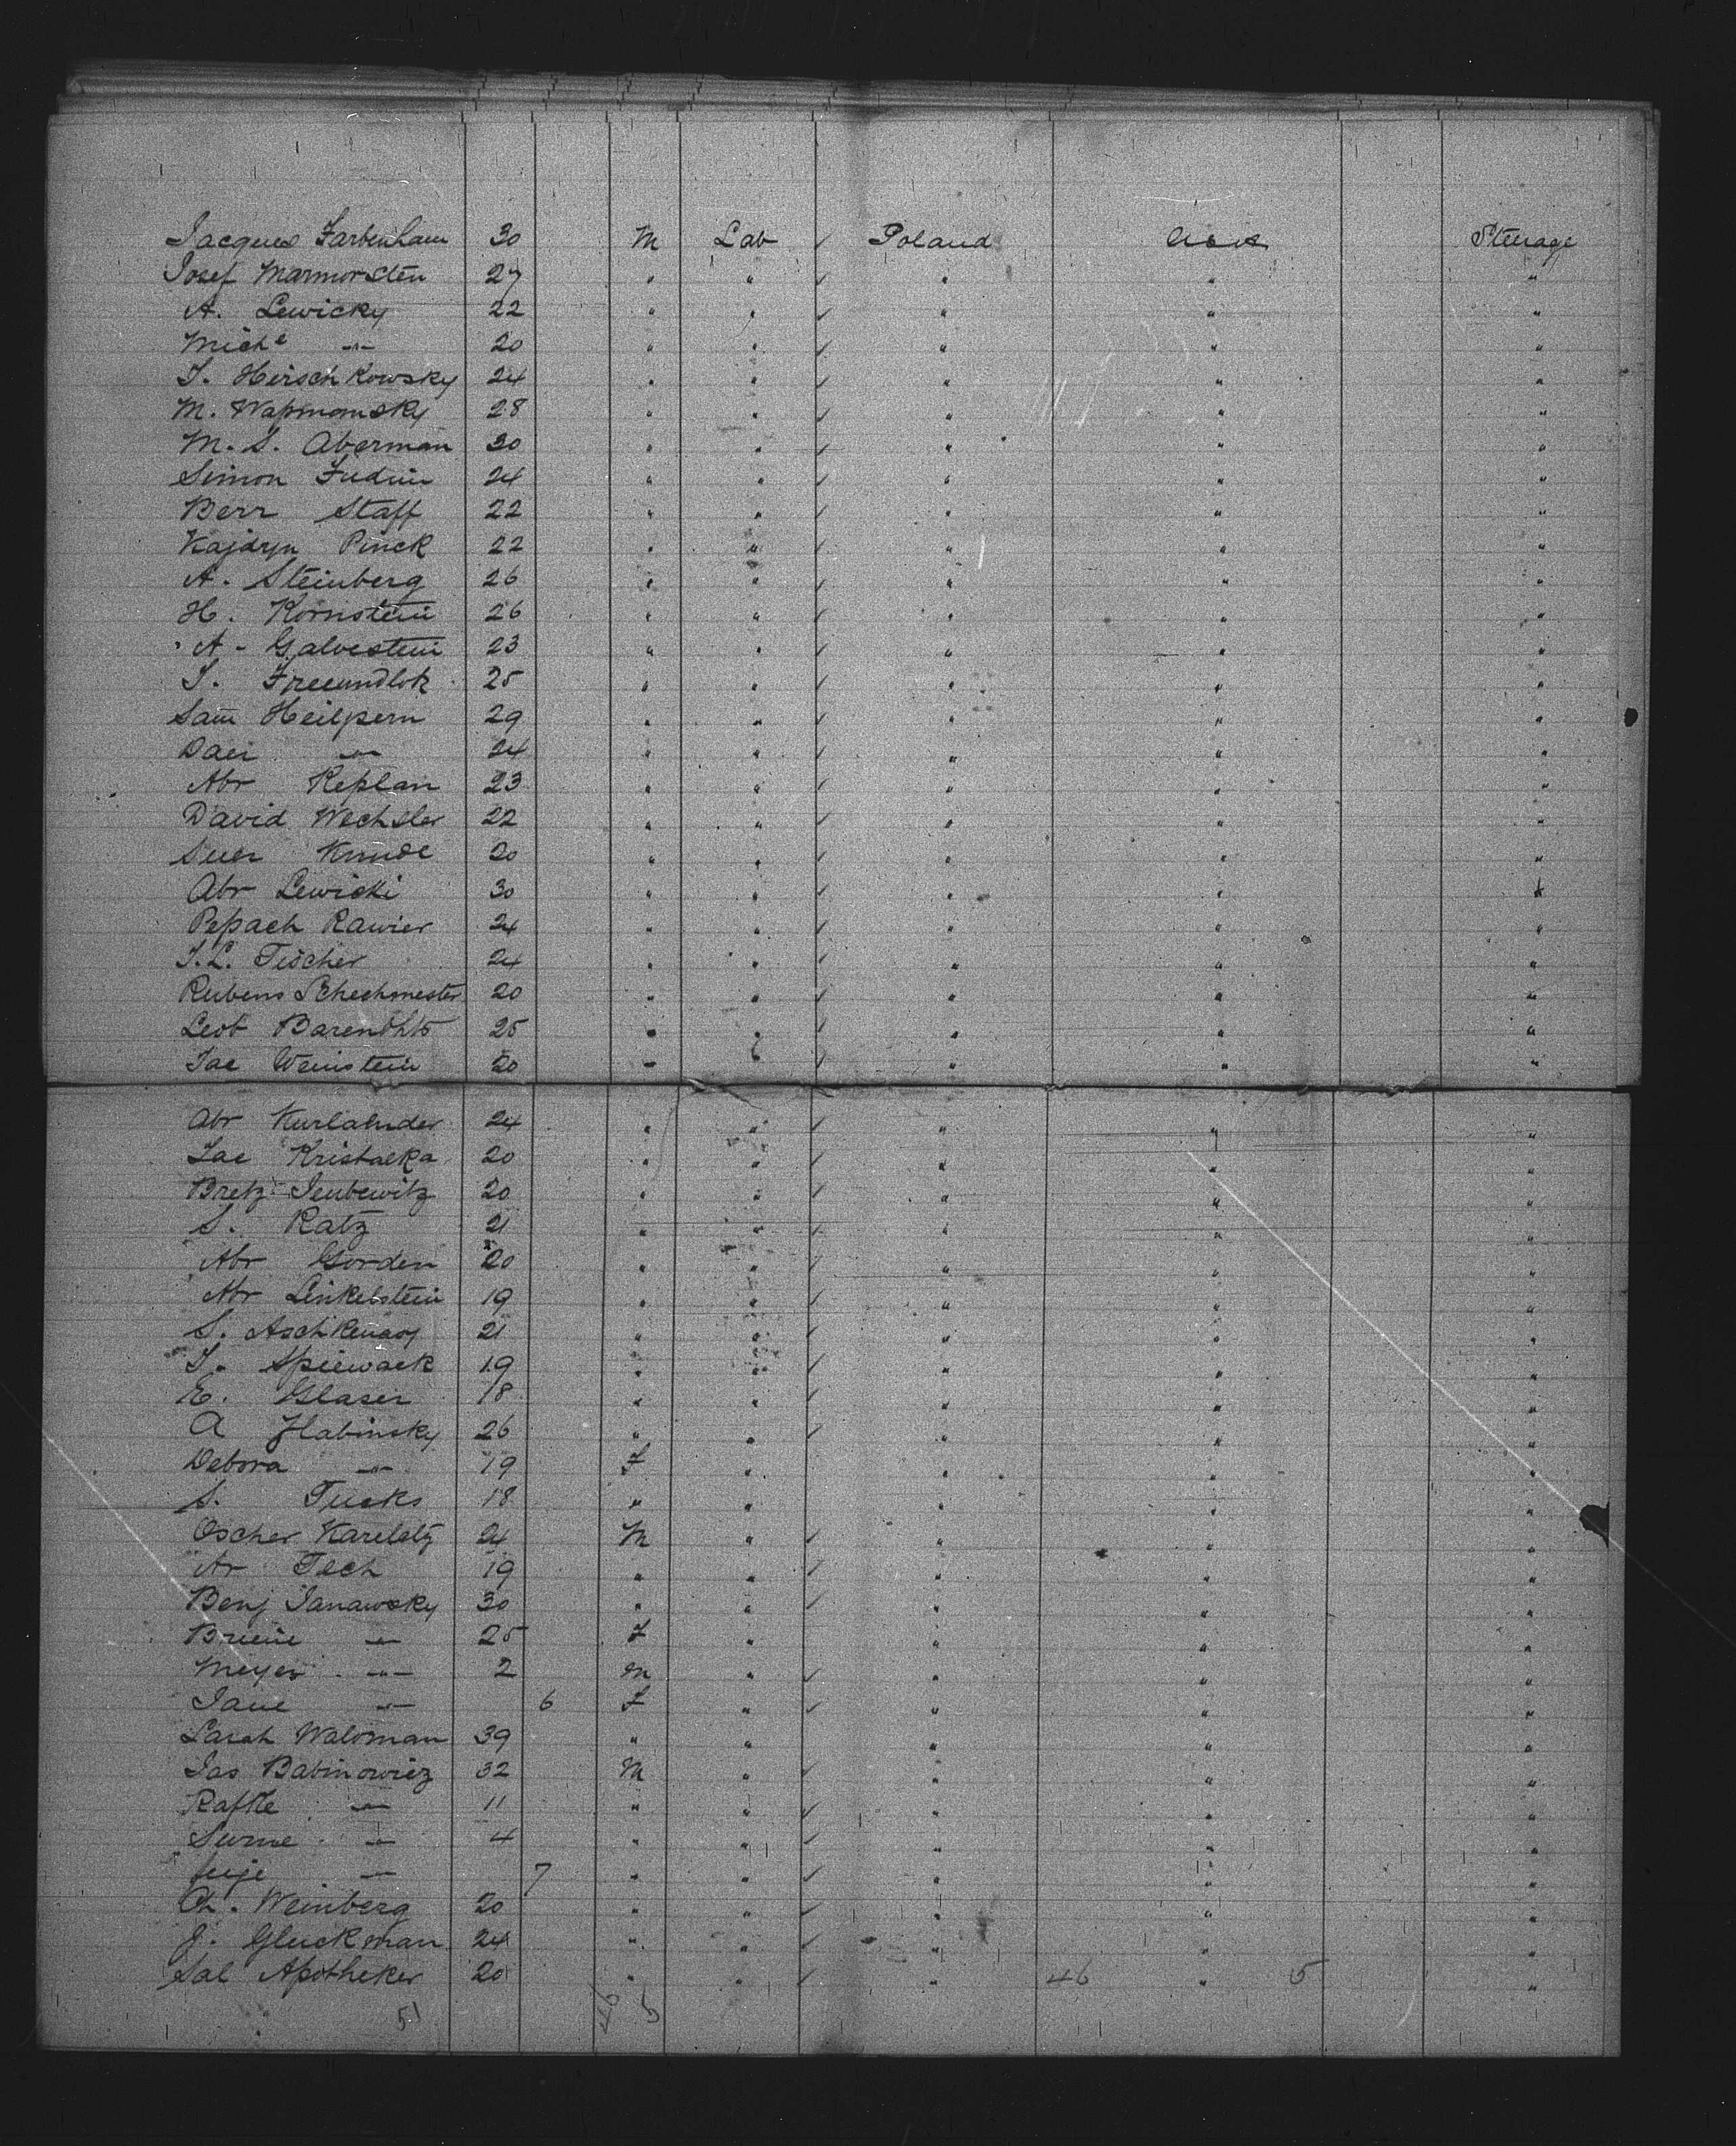 Jacques Farbenham 30 M Lab ✓ Poland U.S.A. Steerage
Josef Marmorsten 27 " " ✓ " " "
A. Lewicky 22 " " ✓ " " "
Miche -"- 20 " " ✓ " " "
I. Hirschkowsky 24 " " ✓ " " "
M. Wapmomsky 28 " " ✓ " " "
M. S. Aberman 30 " " ✓ " " "
Simon Judin 24 " " ✓ " " "
Berr Staff 22 " " ✓ " " "
Kajdryn Pinck 22 " " ✓ " " "
A. Steinberg 26 " " ✓ " " "
H. Kornstein 26 " " ✓ " " "
A - Galvestein 23 " " ✓ " " "
I. 25 " " ✓ " " "
Sam Heilpern 29 " " ✓ " " "
-"- 24 " " ✓ " " "
Abr Keplan 23 " " ✓ " " "
David Wechsler 22 " " ✓ " " "
20 " " ✓ " " "
Abr Lewicki 30 " " ✓ " " "
Pepach Rawier 24 " " ✓ " " "
I. L. Tischer 24 " " ✓ " " "
Rubens Schechmester 20 " " ✓ " " "
Leob 25 " " ✓ " " "
Jac Weinstein 20 " " ✓ " " "
Abr Kurlahnder 24 " " ✓ " " "
Jac Kristalka 20 " " ✓ " " "
Bretz 20 " " ✓ " " "
S. Katz 21 " " ✓ " " "
Abr Gorden 20 " " ✓ " " "
Abr Linkelstein 19 " " ✓ " " "
S. Aschkenasy 21 " " ✓ " " "
I. Spiewack 19 " " ✓ " " "
E. Glaser 18 " " ✓ " " "
A 26 " " ✓ " " "
Debora -"- 19 F " " " "
S. Tucks 18 " " " " "
Oscher Kareletz 24 M " ✓ " " "
Ar Tech 19 " " ✓ " " "
Benj Janawsky 30 " " ✓ " " "
-"- 25 F " " " "
Meyer -"- 2 M " ✓ " " "
-"- 6 F " ✓ " " "
Sarah Waldman 39 " " " " "
Jas Babinowicz 32 M " ✓ " " "
-"- 11 " " ✓ " " "
Surne -"- 4 " " ✓ " " "
-"- 7 " " ✓ " " "
Ch. Weinberg 20 " " ✓ " " "
J. Gluckman 24 " " ✓ " " "
Sal Apotheker 20 " " ✓ " 46 " 5 "
51 46 5